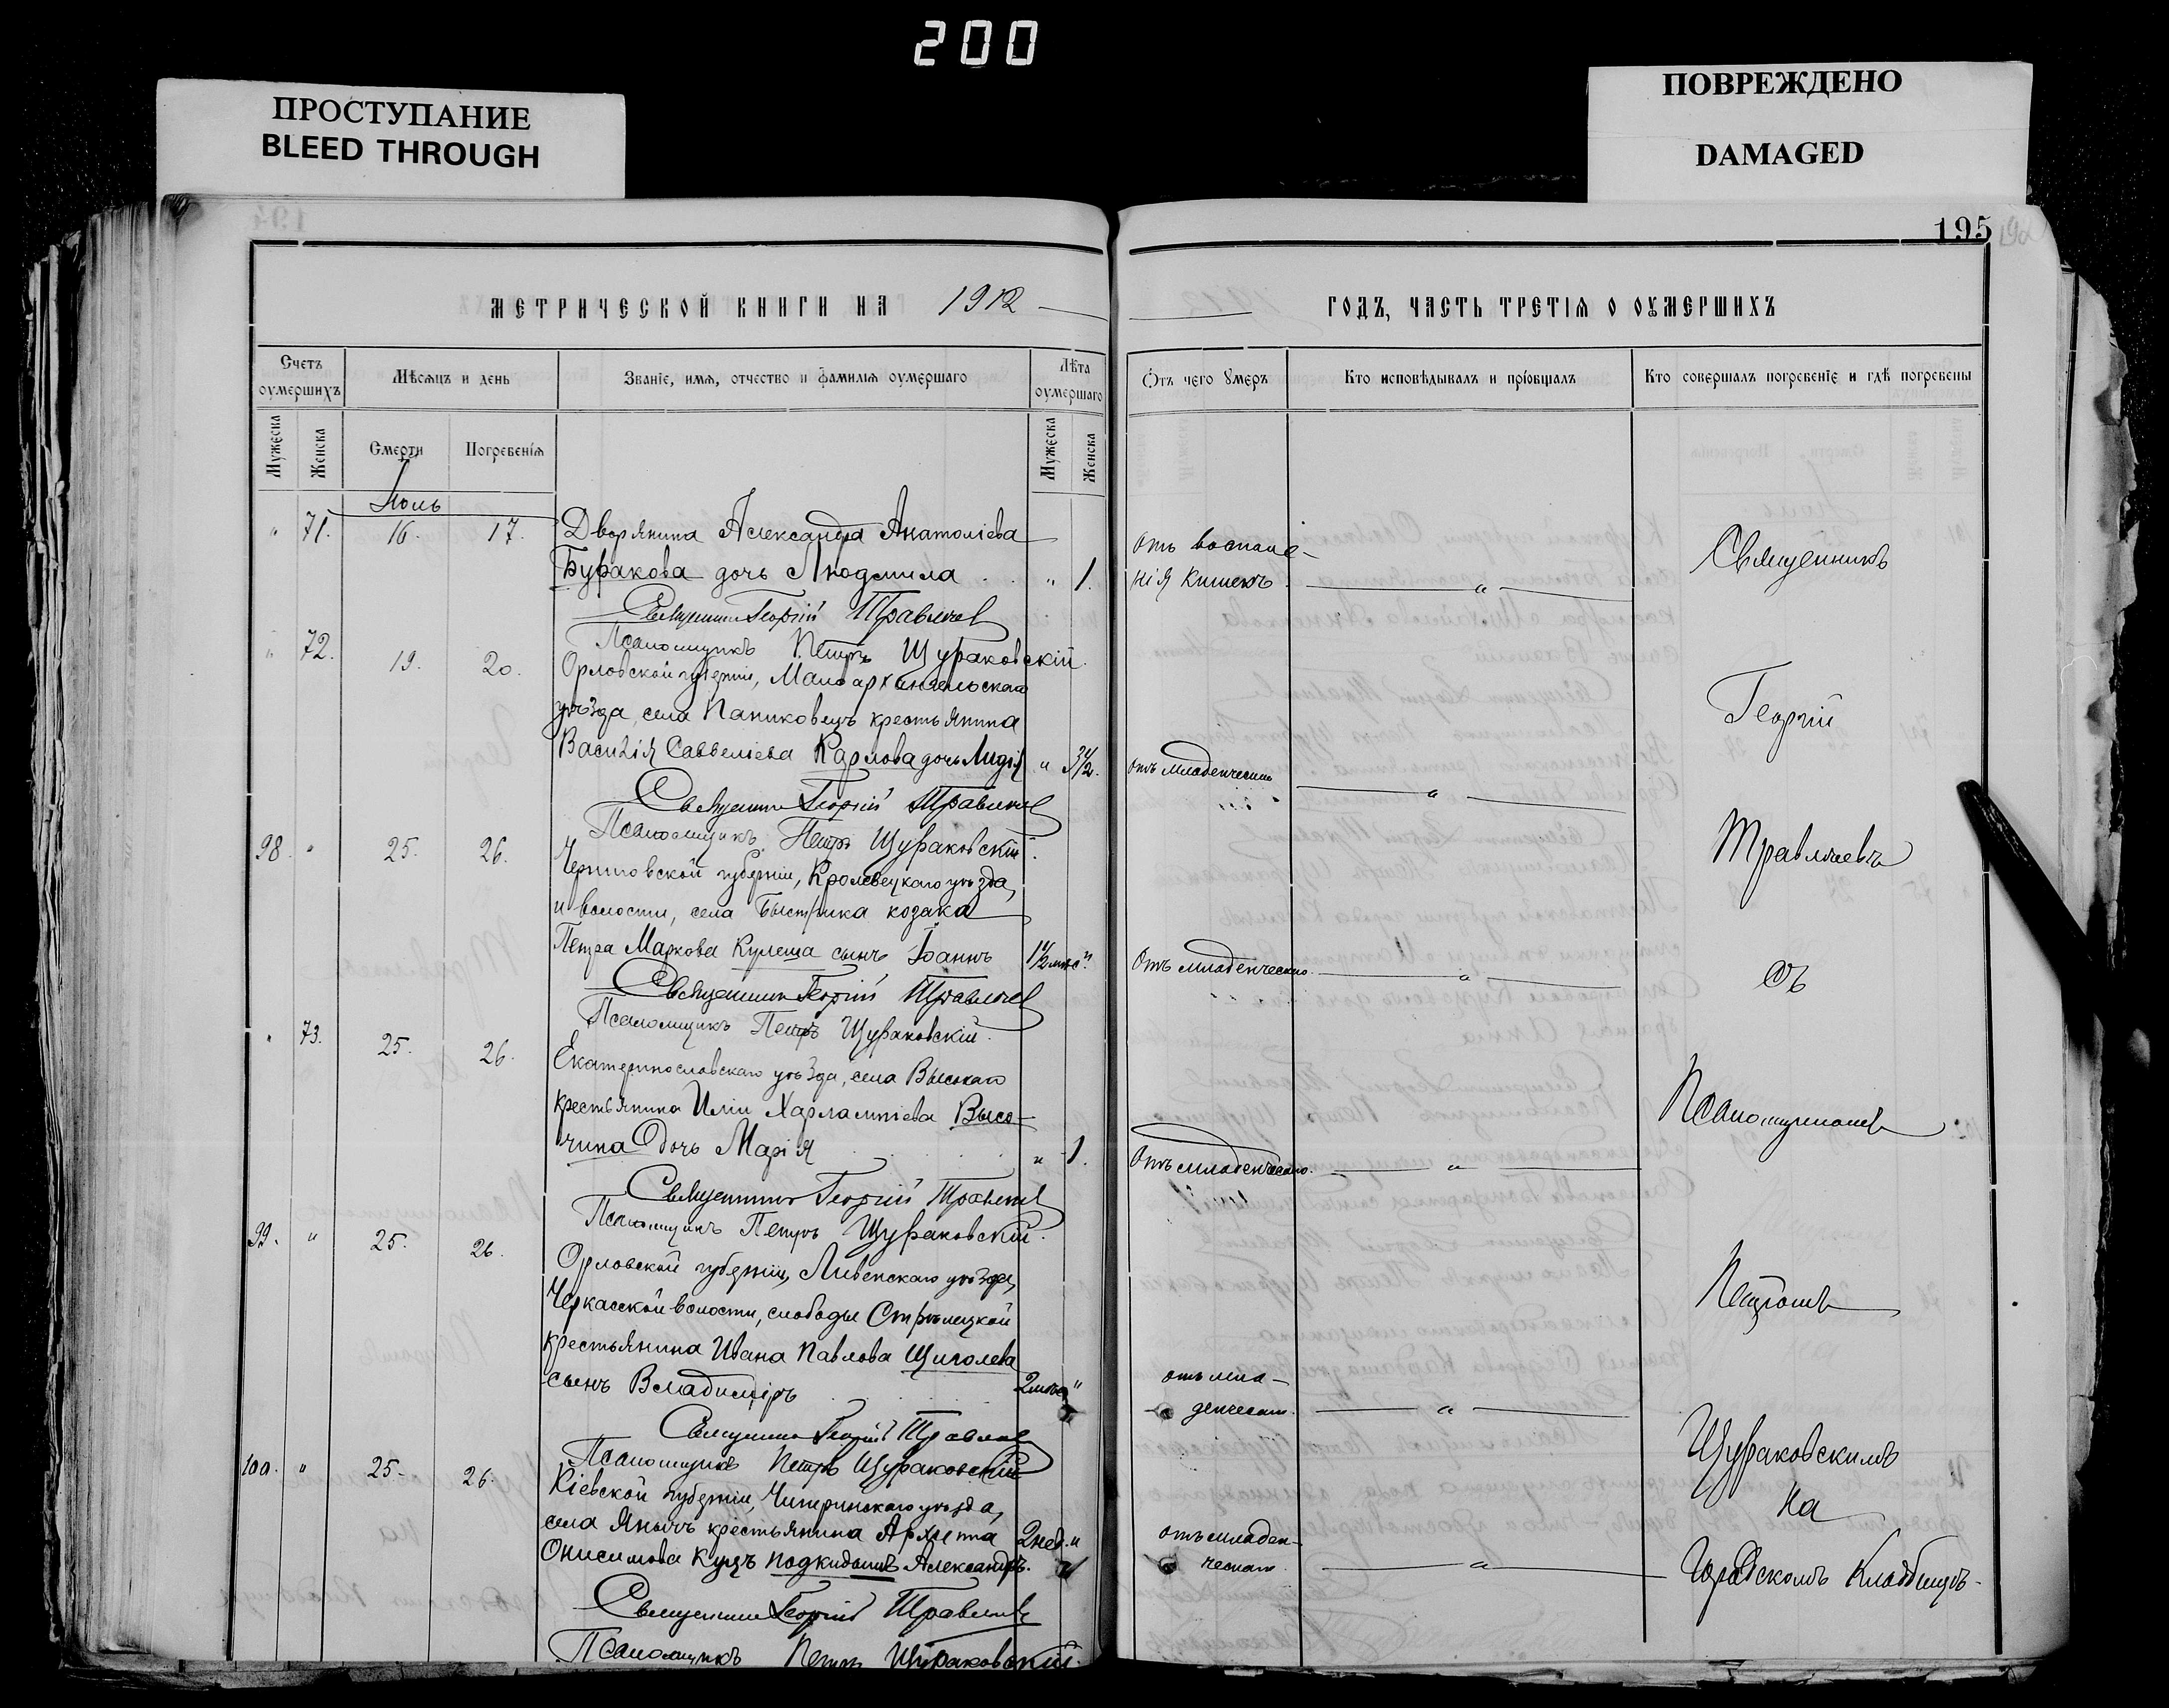 200
ПРОСТУПАНИЕ
BLEED THROUGH
ПОВРЕЖДЕНО
DAMAGED
194
195
МЕТРИЧЕСКОЙ КНИГИ НА 1912
ГОДЪ, ЧАСТЬ ТРЕТІЯ О ОУМЕРШИХЪ
Счетъ оумершихъ
Мѣсяцъ и день
Званіе, имя, отчество и фамилія оумершаго
Лѣта оумершаго
Отъ чего умеръ
Кто исповѣдывалъ и пріобщалъ
Кто совершалъ погребеніе и гдѣ погребены
Мужеска
Женска
Смерти
Погребенія
Мужеска
Женска
Іюль
" 71. 16. 17. Дворянина Александра Анатоліева
Буракова дочь Людмила " 1.
отъ воспале-
нія кишекъ "
Священникъ Георгій Травлчев
Псаломщикъ Петръ Щураковскій
" 72. 19. 20. Орловской губерніи, Малоархангельскаго
уѣзда, села Паниковецъ крестьянина
Василія Савельева Карлова дочь Лидія "
отъ младенческаго "
Священникъ Георгій
Псаломщикъ Петръ Щураковскій.
98. " 25. 26. Черниговской губерніи, Кролевецкаго уѣзда,
и волости, села Быстрика козака
Петра Маркова Кулеша сынъ Іоаннъ 1½ мѣс "
Отъ младенческаго. "
Священникъ Георгій
Псаломщикъ Петръ Щураковскій.
" 73. 25. 26. Екатеринославскаго уѣзда, села Высокаго
крестьянина Иліи Харлампіева Высо-
чина дочь Марія " 1.
Отъ младенческаго. "
Священникъ Георгій
Псаломщикъ Петръ Щураковскій.
99. " 25. 26. Орловской губерніи, Ливенскаго уѣзда,
Черкасской волости, слободы Стрѣлецкой
крестьянина Ивана Павлова Щиголева
сынъ Владиміръ 2 мѣс "
отъ мла-
денческаго. "
Священникъ Георгій
Псаломщикъ Петръ Щураковскій
100. " 25. 26. Кіевской губерніи, Чигиринскаго уѣзда,
села Янычъ крестьянина Архипа
Онисимова Куцъ подкидышъ Александръ. 2 нед. "
отъ младен-
ческаго "
Священникъ Георгій
Псаломщикъ Петръ Щураковскій.
Священникъ
Георгій
съ
Псаломщикомъ
Петромъ
Щураковскимъ
на
Городскомъ Кладбищѣ.